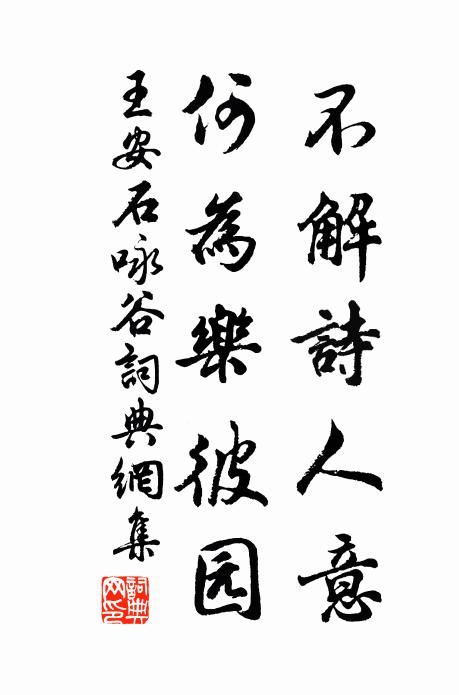 不解詩人意
何為樂彼园
王安石咏谷詞典網集
詞典网印